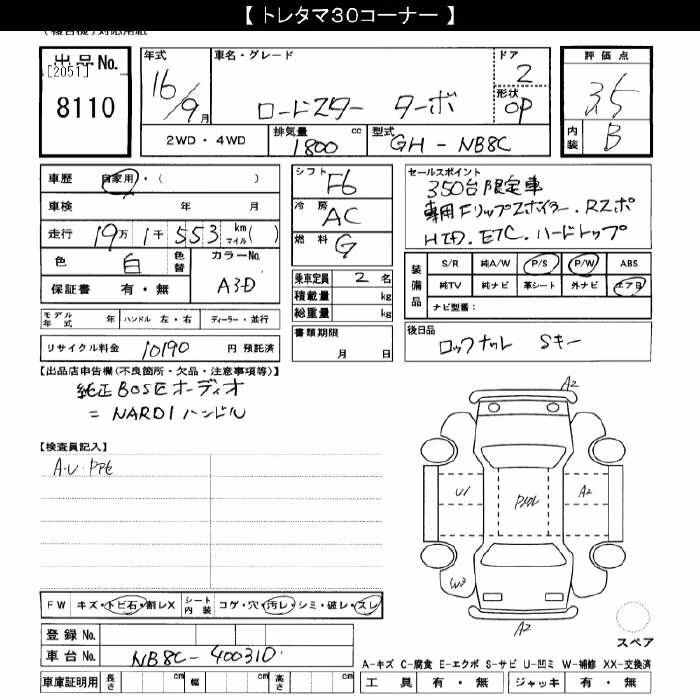 【トレタマ30コーナー】
出品No.
[2051]
8110
年式 車名・グレード ドア
16/9月 ロードスター ターボ 2
形状
OP
2WD・4WD 排気量 1800 cc 型式 GH-NB8C
評価点
3.5
内装 B
車歴 自家用・( )
車検 年 月
走行 19万 1千 553 km マイル ( )
色 白 色替 カラーNo.
保証書 有・無 A3D
モデル年式 年 ハンドル 左・右 ディーラー・並行
リサイクル料金 10190 円 預託済
シフト F6
冷房 AC
燃料 G
乗車定員 2 名
積載量 kg
総重量 kg
書類期限
月 日
セールスポイント
350台限定車
専用Fリップスポイラー.Rスポ
HID.ETC.ハードトップ
装備品
S/R 純A/W P/S P/W ABS
純TV 純ナビ 革シート 外ナビ エアB
ナビ型番:
後日品
ロックナット Sキー
【出品店申告欄(不良箇所・欠品・注意事項等)】
純正BOSEオーディオ
= NARDIハンドル
【検査員記入】
A・U・PPE
A2
U1
A2
W3
A2
スペア
FW キズ・トビ石・割レX シート内装 コゲ・穴・汚レ・シミ・破レ・スレ
登録No.
車台No. NB8C-400310
車庫証明用 長さ cm 幅 cm 高さ cm
A-キズ C-腐食 E-エクボ S-サビ U-凹ミ W-補修 XX-交換済
工具 有・無 ジャッキ 有・無